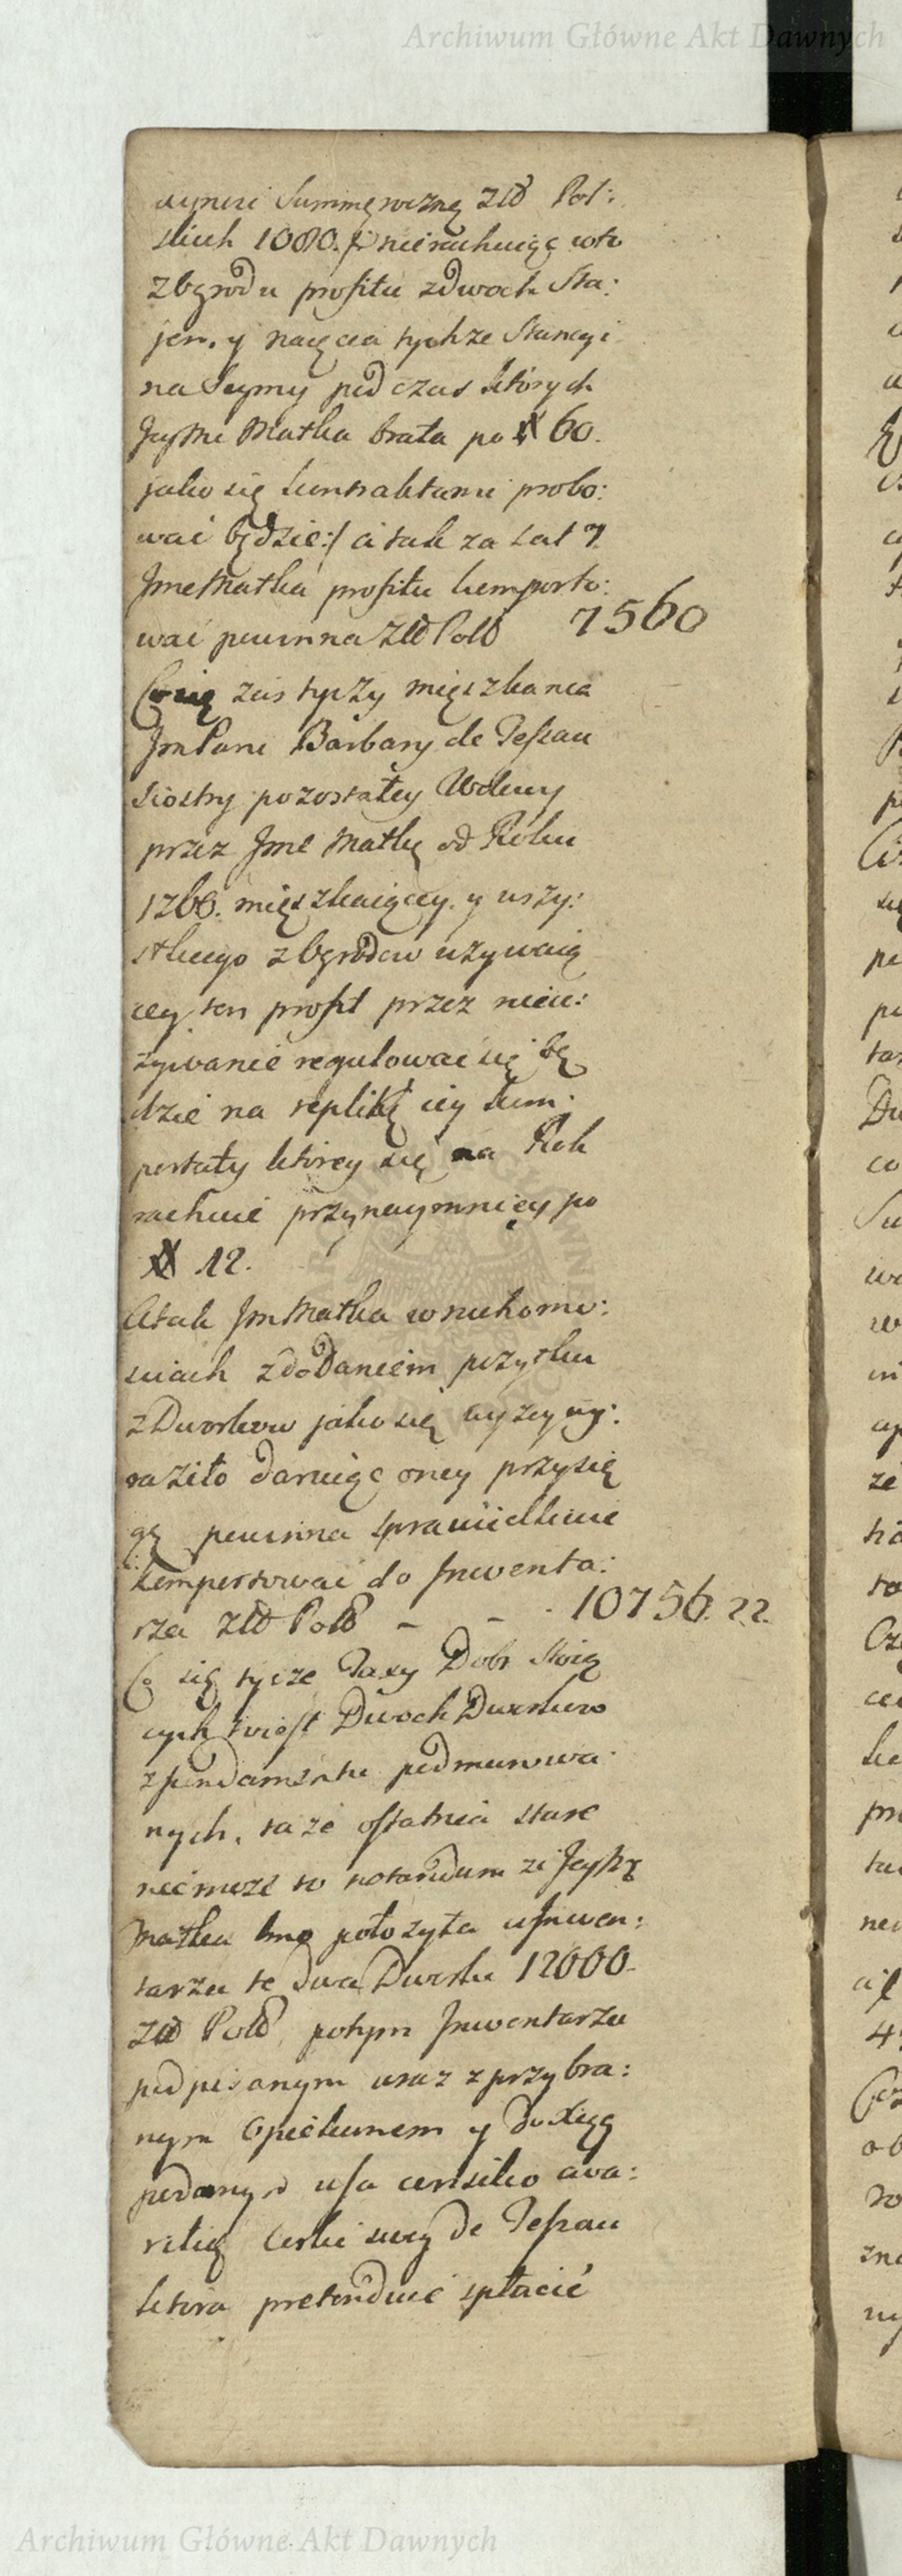 Archiwum Główne Akt Dawnych
wynosi Summę roczną Złł Pol:
skich 1080. /: nierachuiąc wto
z Ogrodu profitu zdwoch Sta:
jen. y naięcia tychże Stancyi
na Seymy pod czas których
Jeymć Matka brała po # 60.
jako się kontraktami probo:
wać będzie:/ a tak za Lat 7.
Jmć Matka profitu komporto:
wać powinna Złł Poll 7560
Co się zas tyczy mięszkania
Jm Pani Barbary de Teszau
Siostry pozostałey Wdowy
przez Jmć Matkę od Roku
1760. mięszkaiącey. y wszy:
stkiego z Ogrodów używaią
cey ten profit przez nieu:
żywanie regulować się bę
dzie na replikę iey kom:
portaty którey się na Rok
rachuie przynaymnięy po
# 12.
A tak Jm Matka w ruchomo:
sciach z dodaniem pożytku
z Dworków jako się wyżey wy:
raziło daruiąc oney przysię
gę powinna sprawiedliwie
komportować do Inwenta:
rza Złł Poll - - . 10756. 22.
Co się tycze Taxy Dobr Stoią
cych Dwoch Dworków
z fundamentu podmurowa:
nych. ta że ostatnia stare
nie może to notandum że Jeymć
Matka położyła w Inwen:
tarzu te dwa Dworki 12000.
Złł Poll, potym Inwentarzu
podpisanym wraz z przybra:
nym Opiekunem y do Xiąg
podanym usa consilio ava:
ritią Corki swey de Teszau
ktora pretenduie spłacić
Archiwum Główne Akt Dawnych